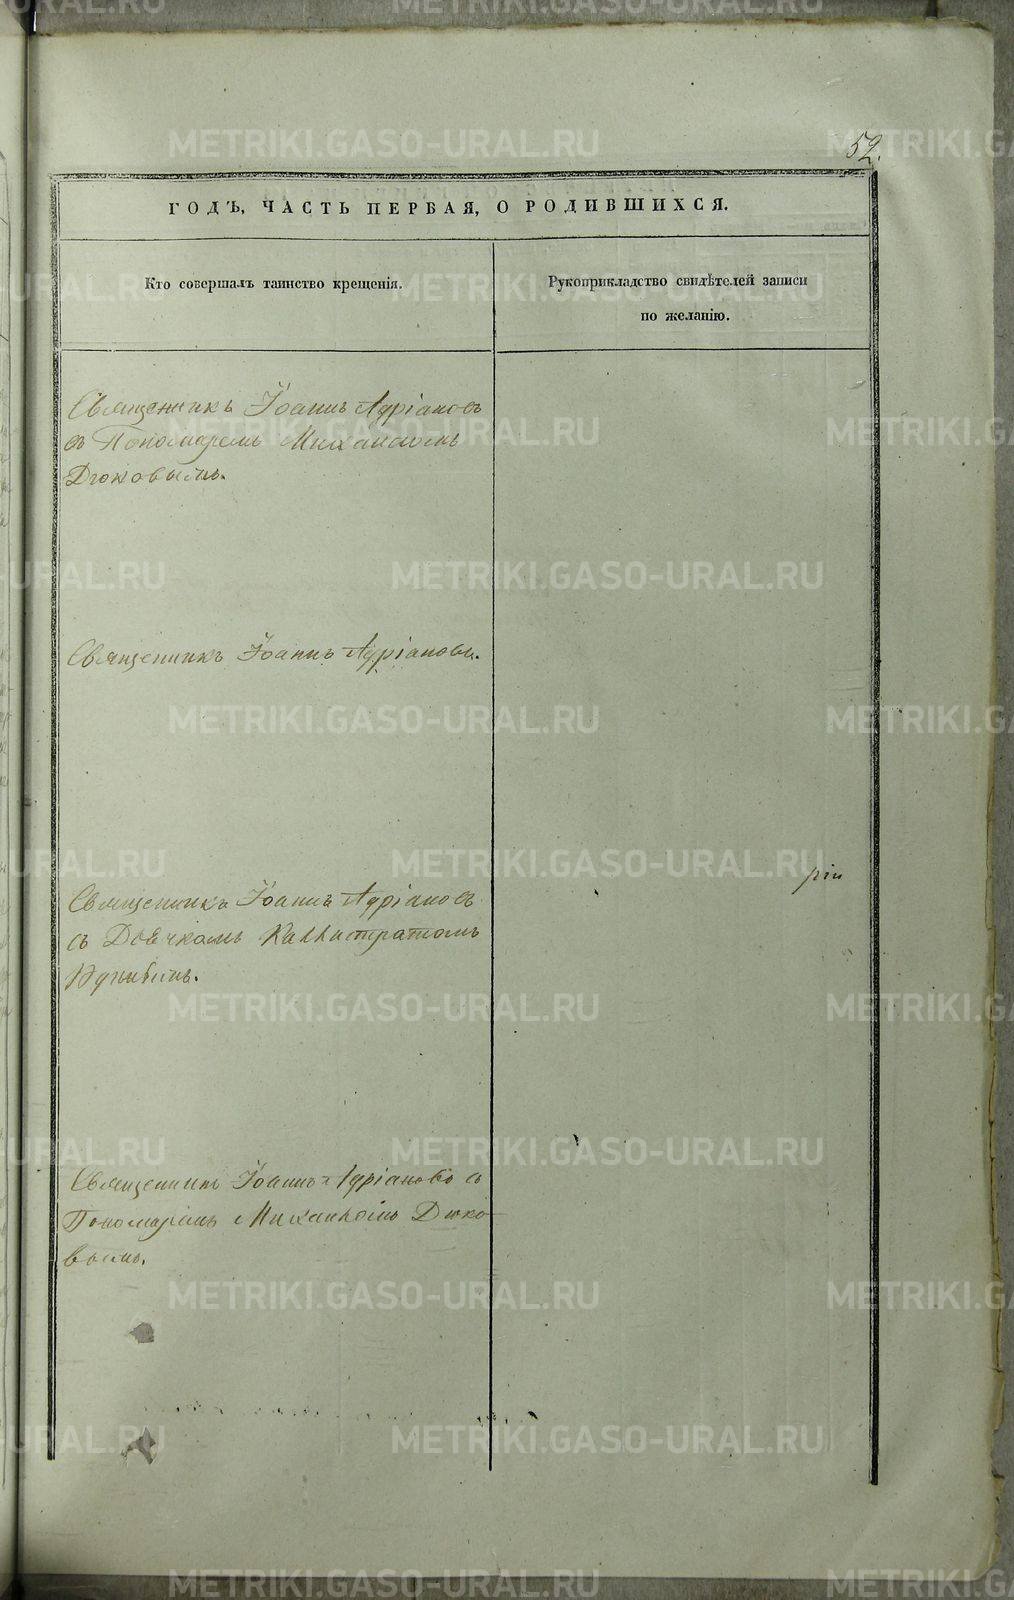 52.
ГОДЪ, ЧАСТЬ ПЕРВАЯ, О РОДИВШИХСЯ.
Кто совершалъ таинство крещенія.
Рукоприкладство свидѣтелей записи
по желанію.
Священникъ Іоаннъ Адріановъ
съ Пономаремъ Михаиломъ
Дюковымъ.
Священникъ Іоаннъ Адріановъ.
Священникъ Іоаннъ Адріановъ
съ Дьячкомъ Каллистратомъ
Священникъ Іоаннъ Адріановъ съ
Пономаремъ Михаиломъ Дюко-
вымъ.
METRIKI.GASO-URAL.RU